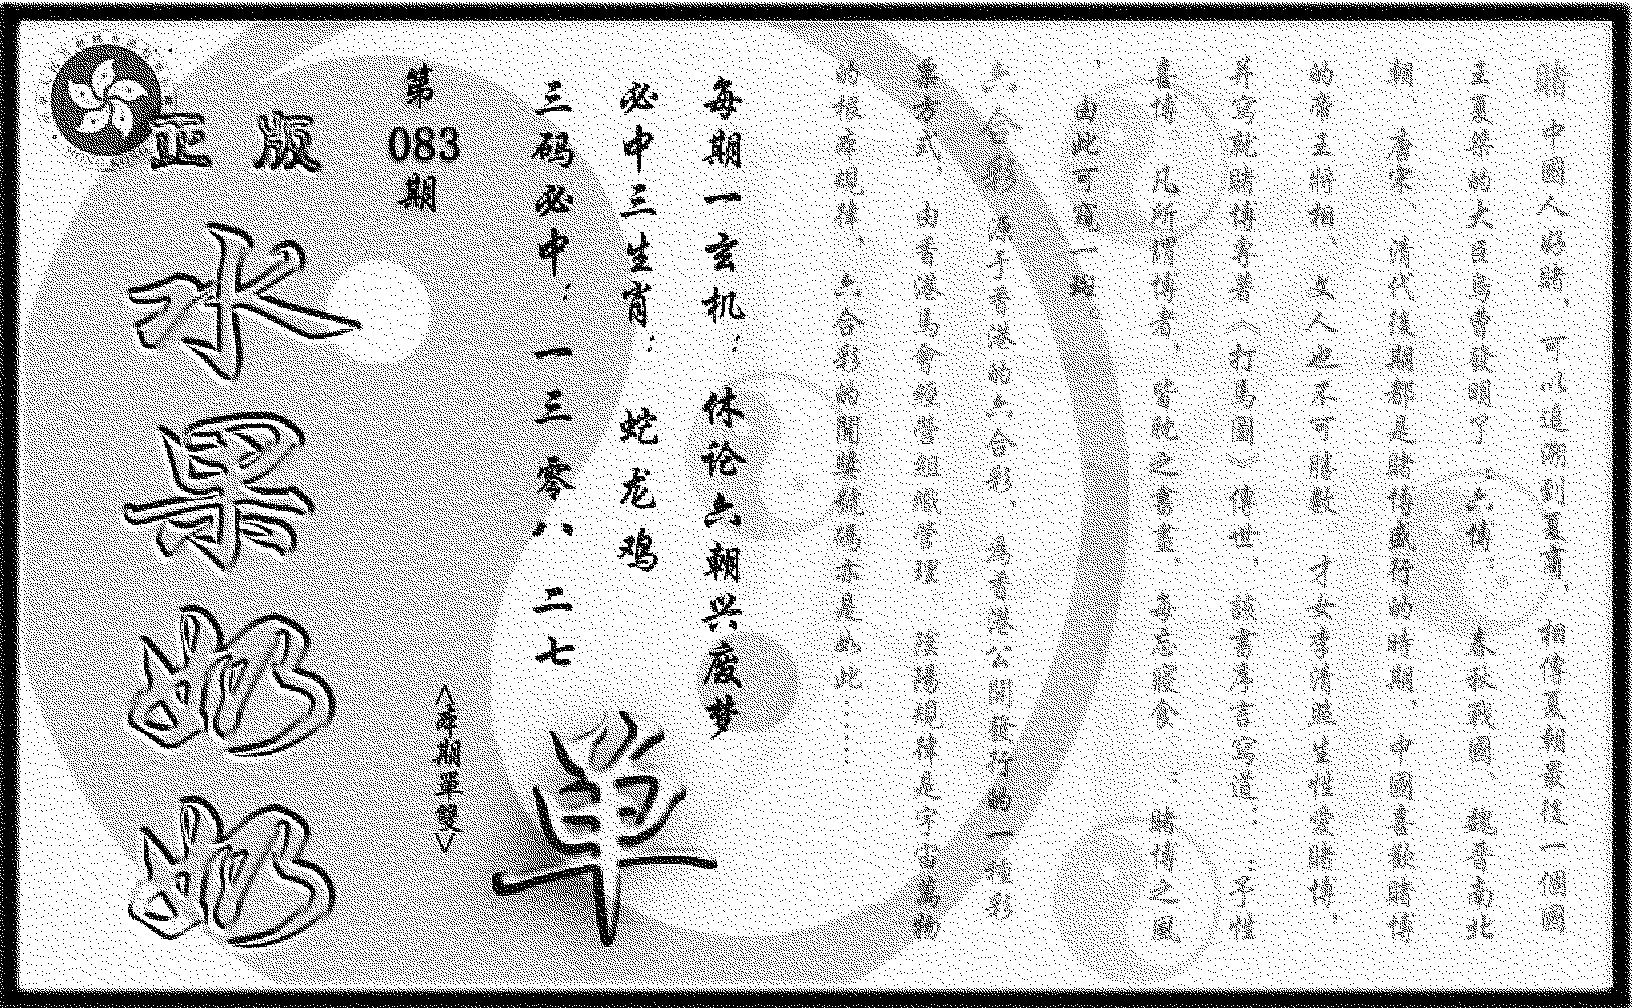 賭 中國人好賭、可以追溯到夏商、相傳夏朝最後一個國
王夏桀的大臣烏曹發明了:六博: 春秋戰國、魏晉南北
朝 唐宋、清代後期都是賭博盛行的時期、中國喜歡賭博
的帝王將相 文人也不可勝數 才女李清照生性愛賭博、
并寫就賭博專著〈打馬圖〉傳世、該書序言寫道::予性
喜博 凡所謂博者、皆耽之晝、每忘寢食 :賭博之風
、由此可窺一
六合彩 源于香港的六合彩、是香港公開發行的一種彩
票方式、由香港馬會經營組織管理 陰陽規律是宇宙萬物
的根本規律、六合彩的開獎號碼亦是如此……
每期一玄机: 休论六朝兴废梦
必中三生肖: 蛇龙鸡
三码必中: 一三 零八 二七
单
第083期
<每期單雙>
正版
水果奶奶